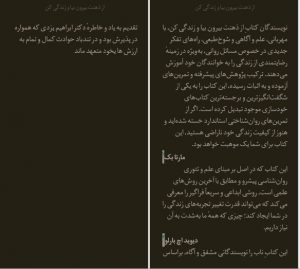 از ذهنت بیرون بیا و زندگی کن
نویسندگان کتاب از ذهنت بیرون بیا و زندگی کن، با
مهربانی، علم و آگاهی و شوخ‌طبعی، راه‌های تفکر
جدیدی در خصوص مسائل روانی، به‌ویژه در زمینهٔ
رضایتمندی از زندگی را به خوانندگان خود آموزش
می‌دهند، ترکیب پژوهش‌های پیشرفته و تمرین‌های
آزموده و به اثبات رسیده، این کتاب را به یکی از
شگفت‌انگیزترین و برجسته‌ترین کتاب‌های
خودسازی موجود تبدیل کرده است. اگر از
تمرین‌های روان‌شناختی استاندارد خسته شده‌اید و
هنوز از کیفیت زندگی خود ناراضی هستید، این
کتاب برای شما یک موهبت خواهد بود.
مارتا بک
این کتاب که در اصل بر مبنای علم و تئوری
روان‌شناسی پیشرو و مطابق با آخرین روش‌های
علمی است، روشی ابداعی و سریعاً فراگیر را معرفی
می کند که می‌تواند قدرت تغییر تجربه‌های زندگی را در
شما ایجاد کند؛ چیزی که همهٔ ما به‌شدت به آن
نیاز داریم.
دیوید اچ بارلو
این کتاب ناب را نویسندگانی مشفق و آگاه، براساس
از ذهنت بیرون بیا و زندگی کن
تقدیم به یاد و خاطرهٔ دکتر ابراهیم یزدی که همواره
در پذیرش بود و در تندباد حوادث کمال و تمام به
ارزش ها پایخود متعهد ماند